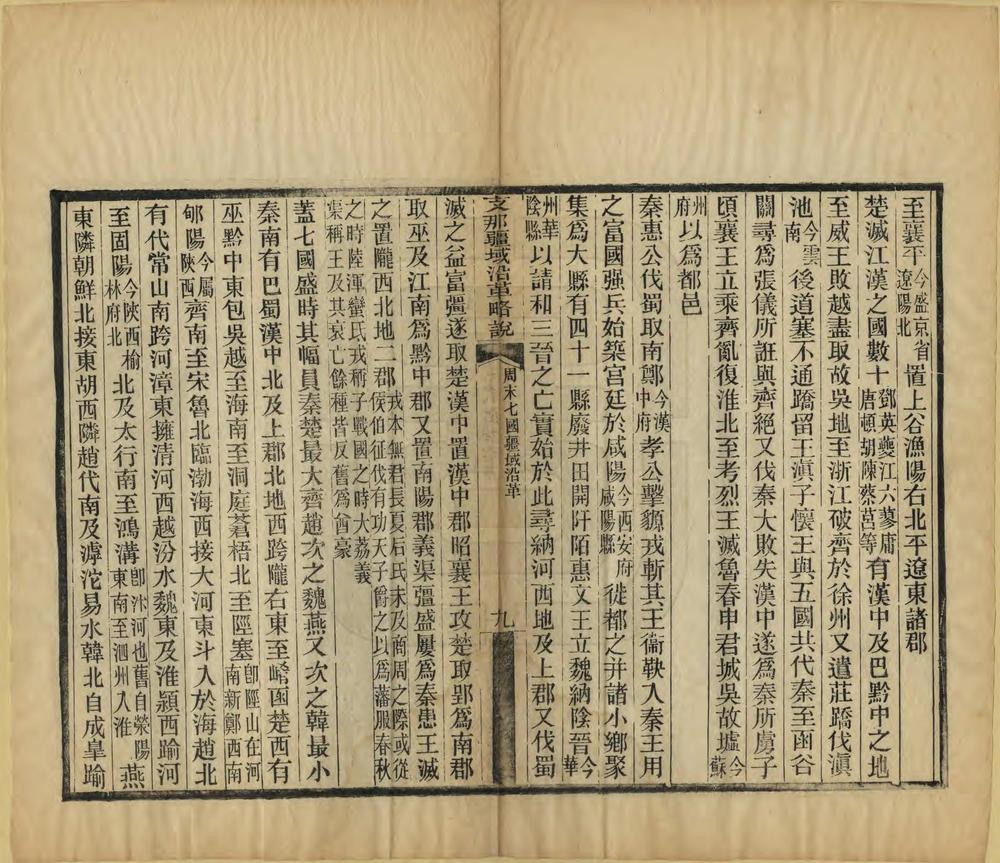 至襄平今盛京省遼陽北置上谷漁陽右北平遼東諸郡
楚滅江漢之國數十鄧英夔江六蓼庸唐頓胡陳蔡莒等有漢中及巴黔中之地
至威王敗越盡取故吳地至浙江破齊於徐州又遣莊蹻伐滇
池今雲南後道塞不通蹻留王滇子懷王與五國共伐秦至函谷
關尋爲張儀所誑與齊絕又伐秦大敗失漢中遂爲秦所虜子
頃襄王立乘齊亂復淮北至考烈王滅魯春申君城吳故墟今蘇
州府以爲都邑
秦惠公伐蜀取南鄭今漢中府孝公擊豲戎斬其王衞鞅入秦王用
之富國强兵始築宮廷於咸陽今西安府咸陽縣徙都之幷諸小鄉聚
集爲大縣有四十一縣廢井田開阡陌惠文王立魏納陰晉今華
州華陰縣以請和三晉之亡實始於此尋納河西地及上郡又伐蜀
支那疆域沿革略說 周末七國疆域沿革 九
滅之益富彊遂取楚漢中置漢中郡昭襄王攻楚取郢爲南郡
取巫及江南爲黔中郡又置南陽郡義渠彊盛屢爲秦患王滅
之置隴西北地二郡戎本無君長夏后氏末及商周之際或從侯伯征伐有功天子爵之以爲藩服春秋
之時陸渾蠻氏戎稱子戰國之時大荔義渠稱王及其衰亡餘種皆反舊爲酋豪
蓋七國盛時其幅員秦楚最大齊趙次之魏燕又次之韓最小
秦南有巴蜀漢中北及上郡北地西跨隴右東至崤函楚西有
巫黔中東包吳越至海南至洞庭蒼梧北至陘塞卽陘山在河南新鄭西南
郇陽今屬陝西齊南至宋魯北臨渤海西接大河東斗入於海趙北
有代常山南跨河漳東擁清河西越汾水魏東及淮潁西踰河
至固陽今陝西榆林府北北及太行南至鴻溝卽汴河也舊自滎陽東南至泗州入淮燕
東隣朝鮮北接東胡西隣趙代南及滹沱易水韓北自成皐踰